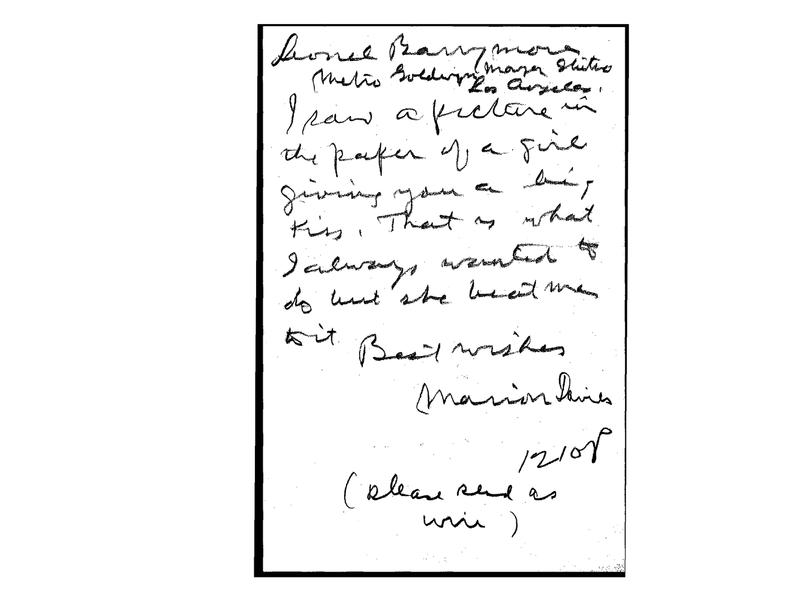 Lionel Barrymore
Metro Goldwyn Mayer Studio
Los Angeles.
I saw a picture in
the paper of a girl
giving you a big
kiss. That is what
I always wanted to
do but she beat me
to it
Best wishes
Marion Davies
1210P
(please send as
wire)